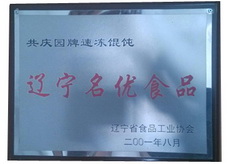 共庆园牌速冻馄饨
辽宁名优食品
辽宁省食品工业协会
二00一年八月